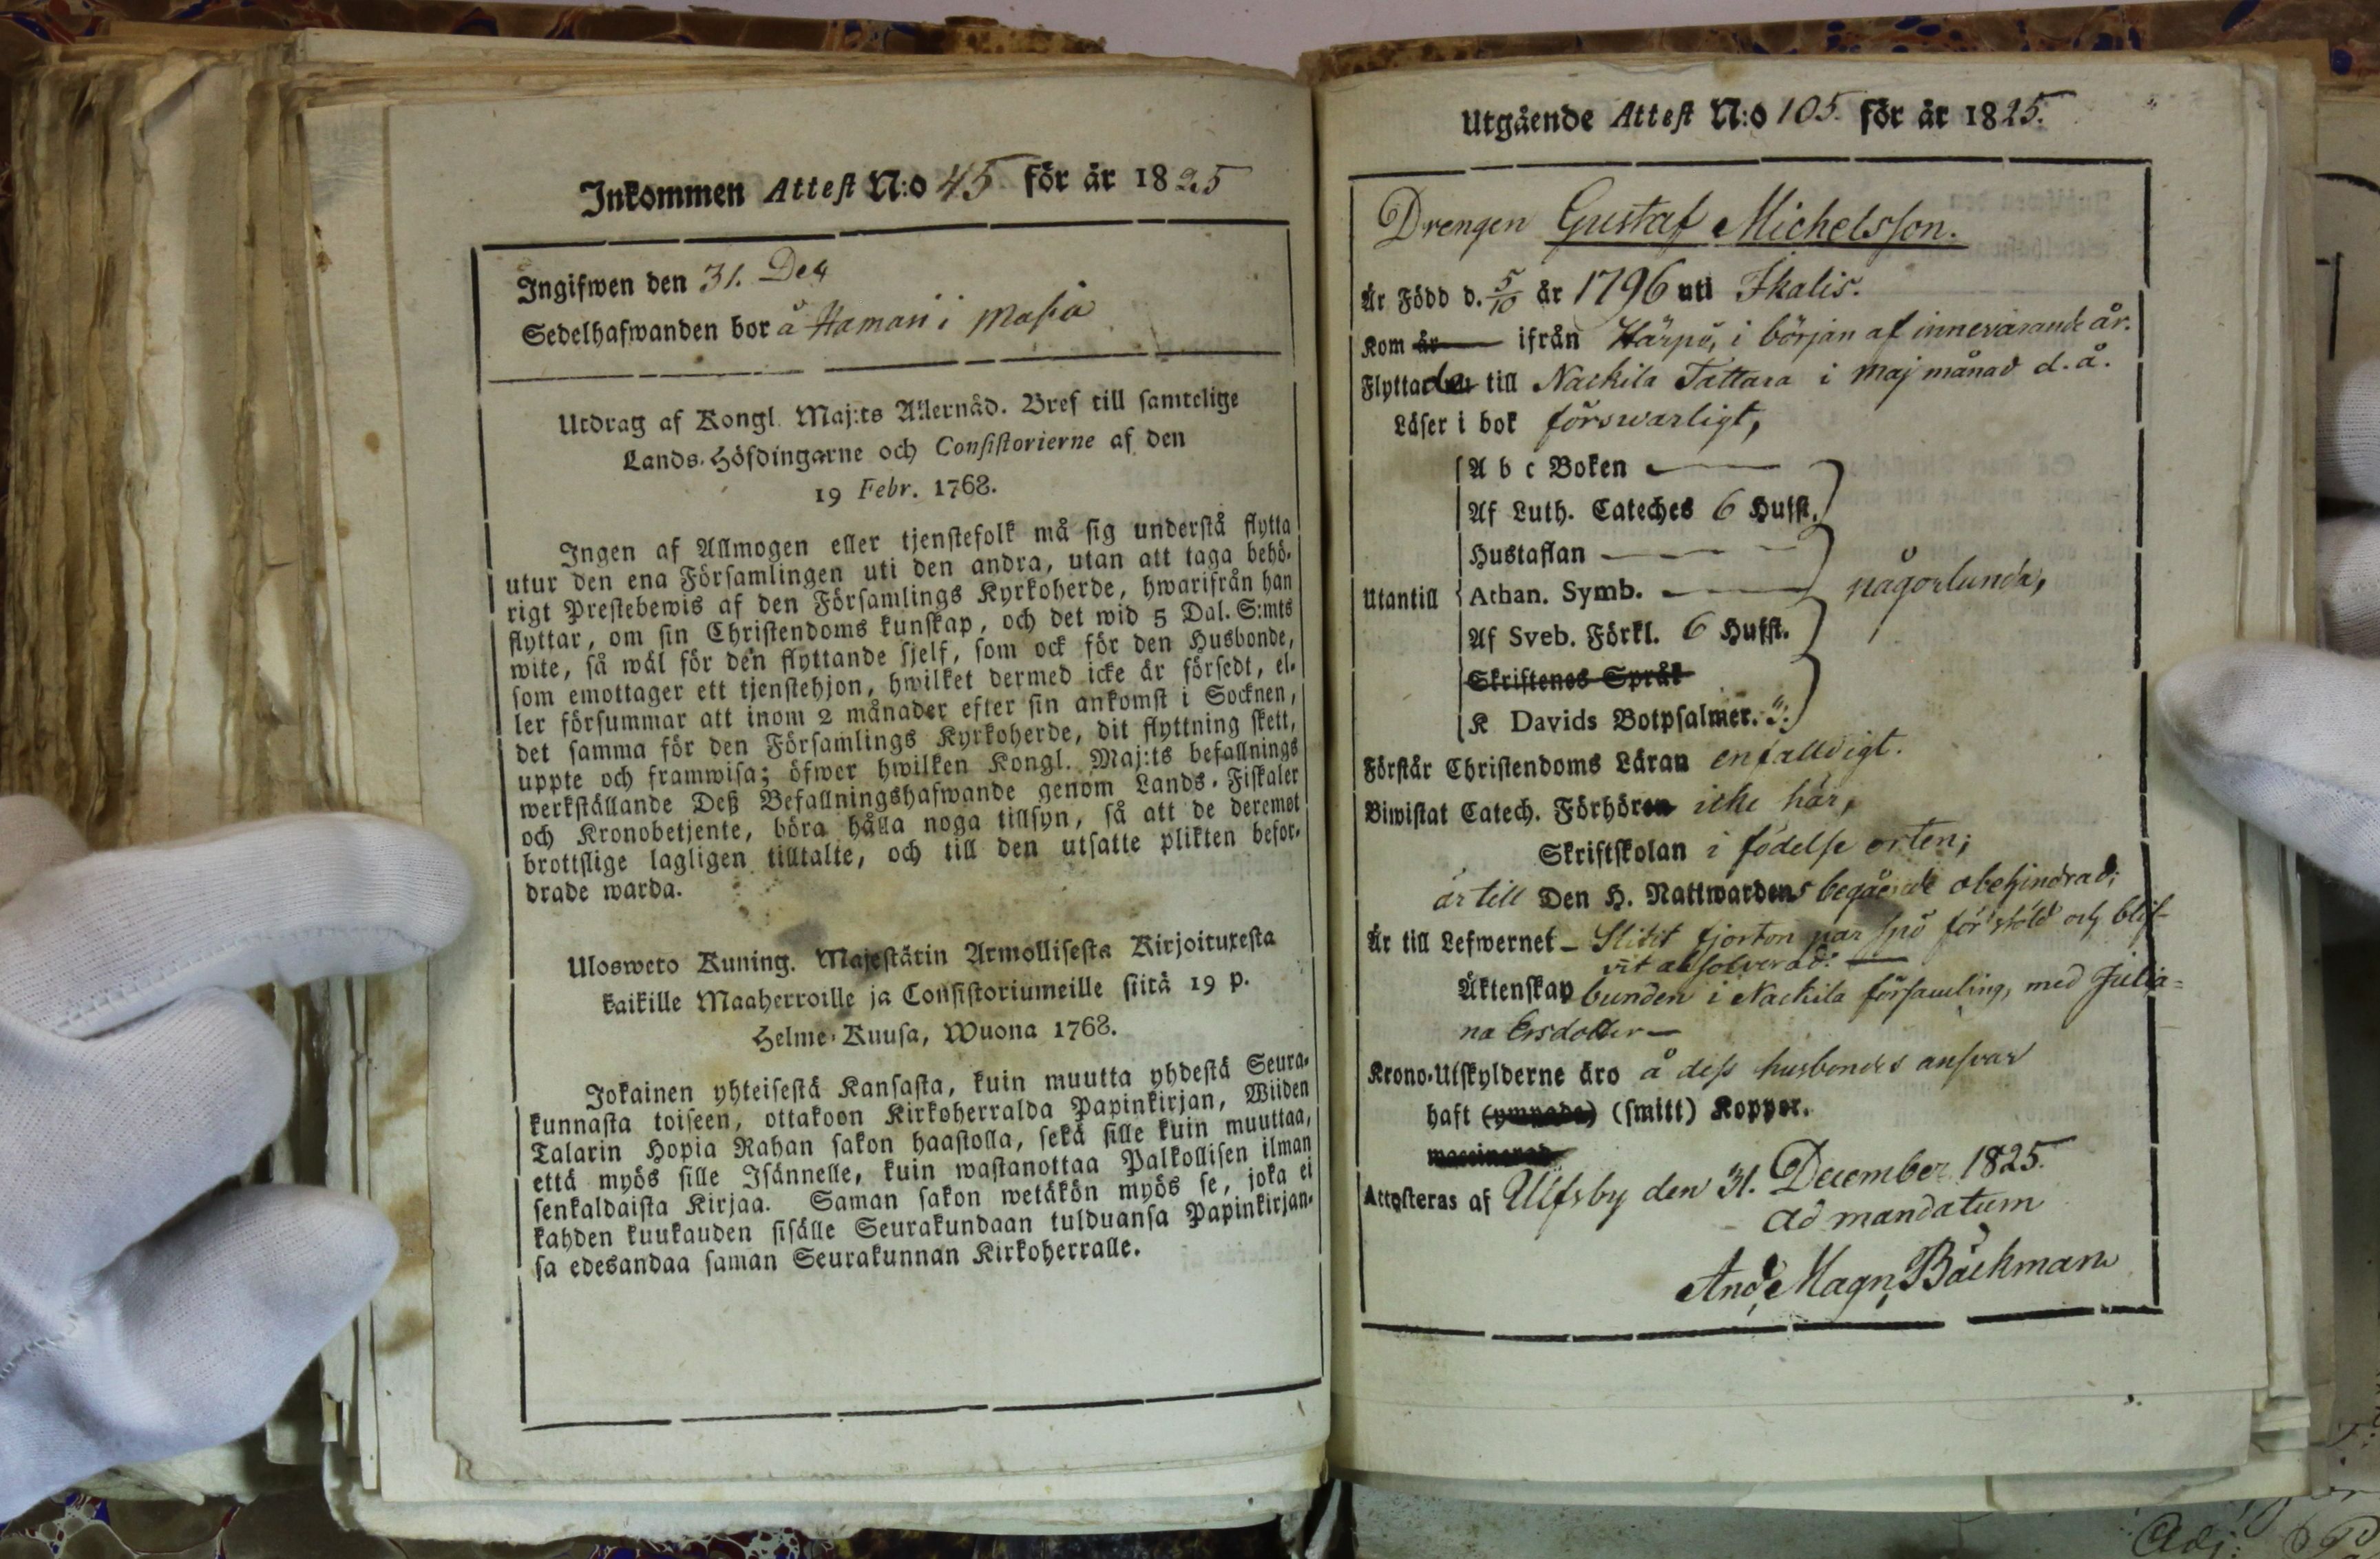 Inkommen Attest N:o 45 för år 1825
Ingifwen den 31. Dec
Sedelhafwanden bor å Hamari i Masia
Utdrag af Kongl. Maj:ts Allernåd. Bref till samtelige
Lands-Höfdingarne och Consistorierne af den
19 Febr. 1768.
Ingen af Allmogen eller tjenstefolk må sig understå flytta
utur den ena Församlingen uti den andra, utan att taga behö-
rigt Prestebewis af den Församlings Kyrkoherde, hwarifrån han
flyttar, om sin Christendoms kunskap, och det wid 5 Dal. S:mts
wite, så wäl för den flyttande sjelf, som ock för den Husbonde,
som emottager ett tjenstehjon, hwilket dermed icke är försedt, el-
ler försummar att inom 2 månader efter sin ankomst i Socknen,
det samma för den Församlings Kyrkoherde, dit flyttning skett,
uppte och framwisa; öfwer hwilken Kongl. Maj:ts befallnings
werkställande Deß Befallningshafwande genom Lands-Fiskaler
och Kronobetjente, böra hålla noga tillsyn, så att de deremot
brottslige lagligen tilltalte, och till den utsatte plikten befor-
drade warda.
Ulosweto Kuning. Majestätin Armollisesta Kirjoituxesta
kaikille Maaherroille ja Consistoriumeille siitä 19 p.
Helme-Kuusa, Wuona 1768.
Jokainen yhteisestä Kansasta, kuin muutta yhdestä Seura-
kunnasta toiseen, ottakoon Kirkoherralda Papinkirjan, Wiiden
Talarin Hopia Rahan sakon haastolla, sekä sille kuin muuttaa,
että myös sille Isännelle, kuin wastanottaa Palkollisen ilman
senkaldaista Kirjaa. Saman sakon wetäkön myös se, joka ei
kahden kuukauden sisälle Seurakundaan tulduansa Papinkirjan-
sa edesandaa saman Seurakunnan Kirkoherralle.
Utgående Attest N:o 105. för år 1825.
Drengen Gustaf Michelsson.
Är Född d. 5/10 år 1796 uti Ikalis.
Kom år ifrån Härpö, i början af innevarande år.
Flyttade till Nackila Tattara i Maj månad d. å.
Läser i bok förswarligt,
A b c Boken
Af Luth. Cateches 6 Hufst.
Hustaflan
Utantill Athan. Symb. någorlunda,
Af Sveb. Förkl. 6 Hufst.
Skriftenes Språk
K Davids Botpsalmer. 3.
Förstår Christendoms Läran enfalldigt.
Biwistat Catech. Förhören icke här,
Skriftskolan i födelse orten;
är till Den H. Nattwardens begående obehindrad;
Är till Lefwernet – Slitit fjorton par spö för stöld och blif-
vit absolverad.
Äktenskap bunden i Nackila församling, med Julia=
na Ersdotter –
Krono-Utskylderne äro å dess husbondes ansvar
haft (ympade) (smitt) Koppor.
vaccinerad
Attesteras af Ulfsby den 31. December 1825.
ad mandatum
And. Magn. Bäckman